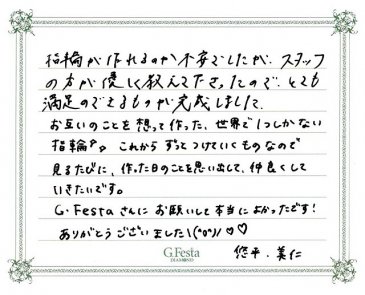 指輪が作れるのか不安でしたが、スタッフ
の方が優しく教えて下さったので、とても
満足のできるものが完成しました。
お互いのことを想って作った、世界で1つしかない
指輪。これからずっとつけていくものなので
見るたびに、作った日のことを思い出して、仲良くして
いきたいです。
G.Festaさんにお願いして本当によかったです!
ありがとうございました\(^o^)/♡♡
G.Festa
DIAMOND
悠平・美仁